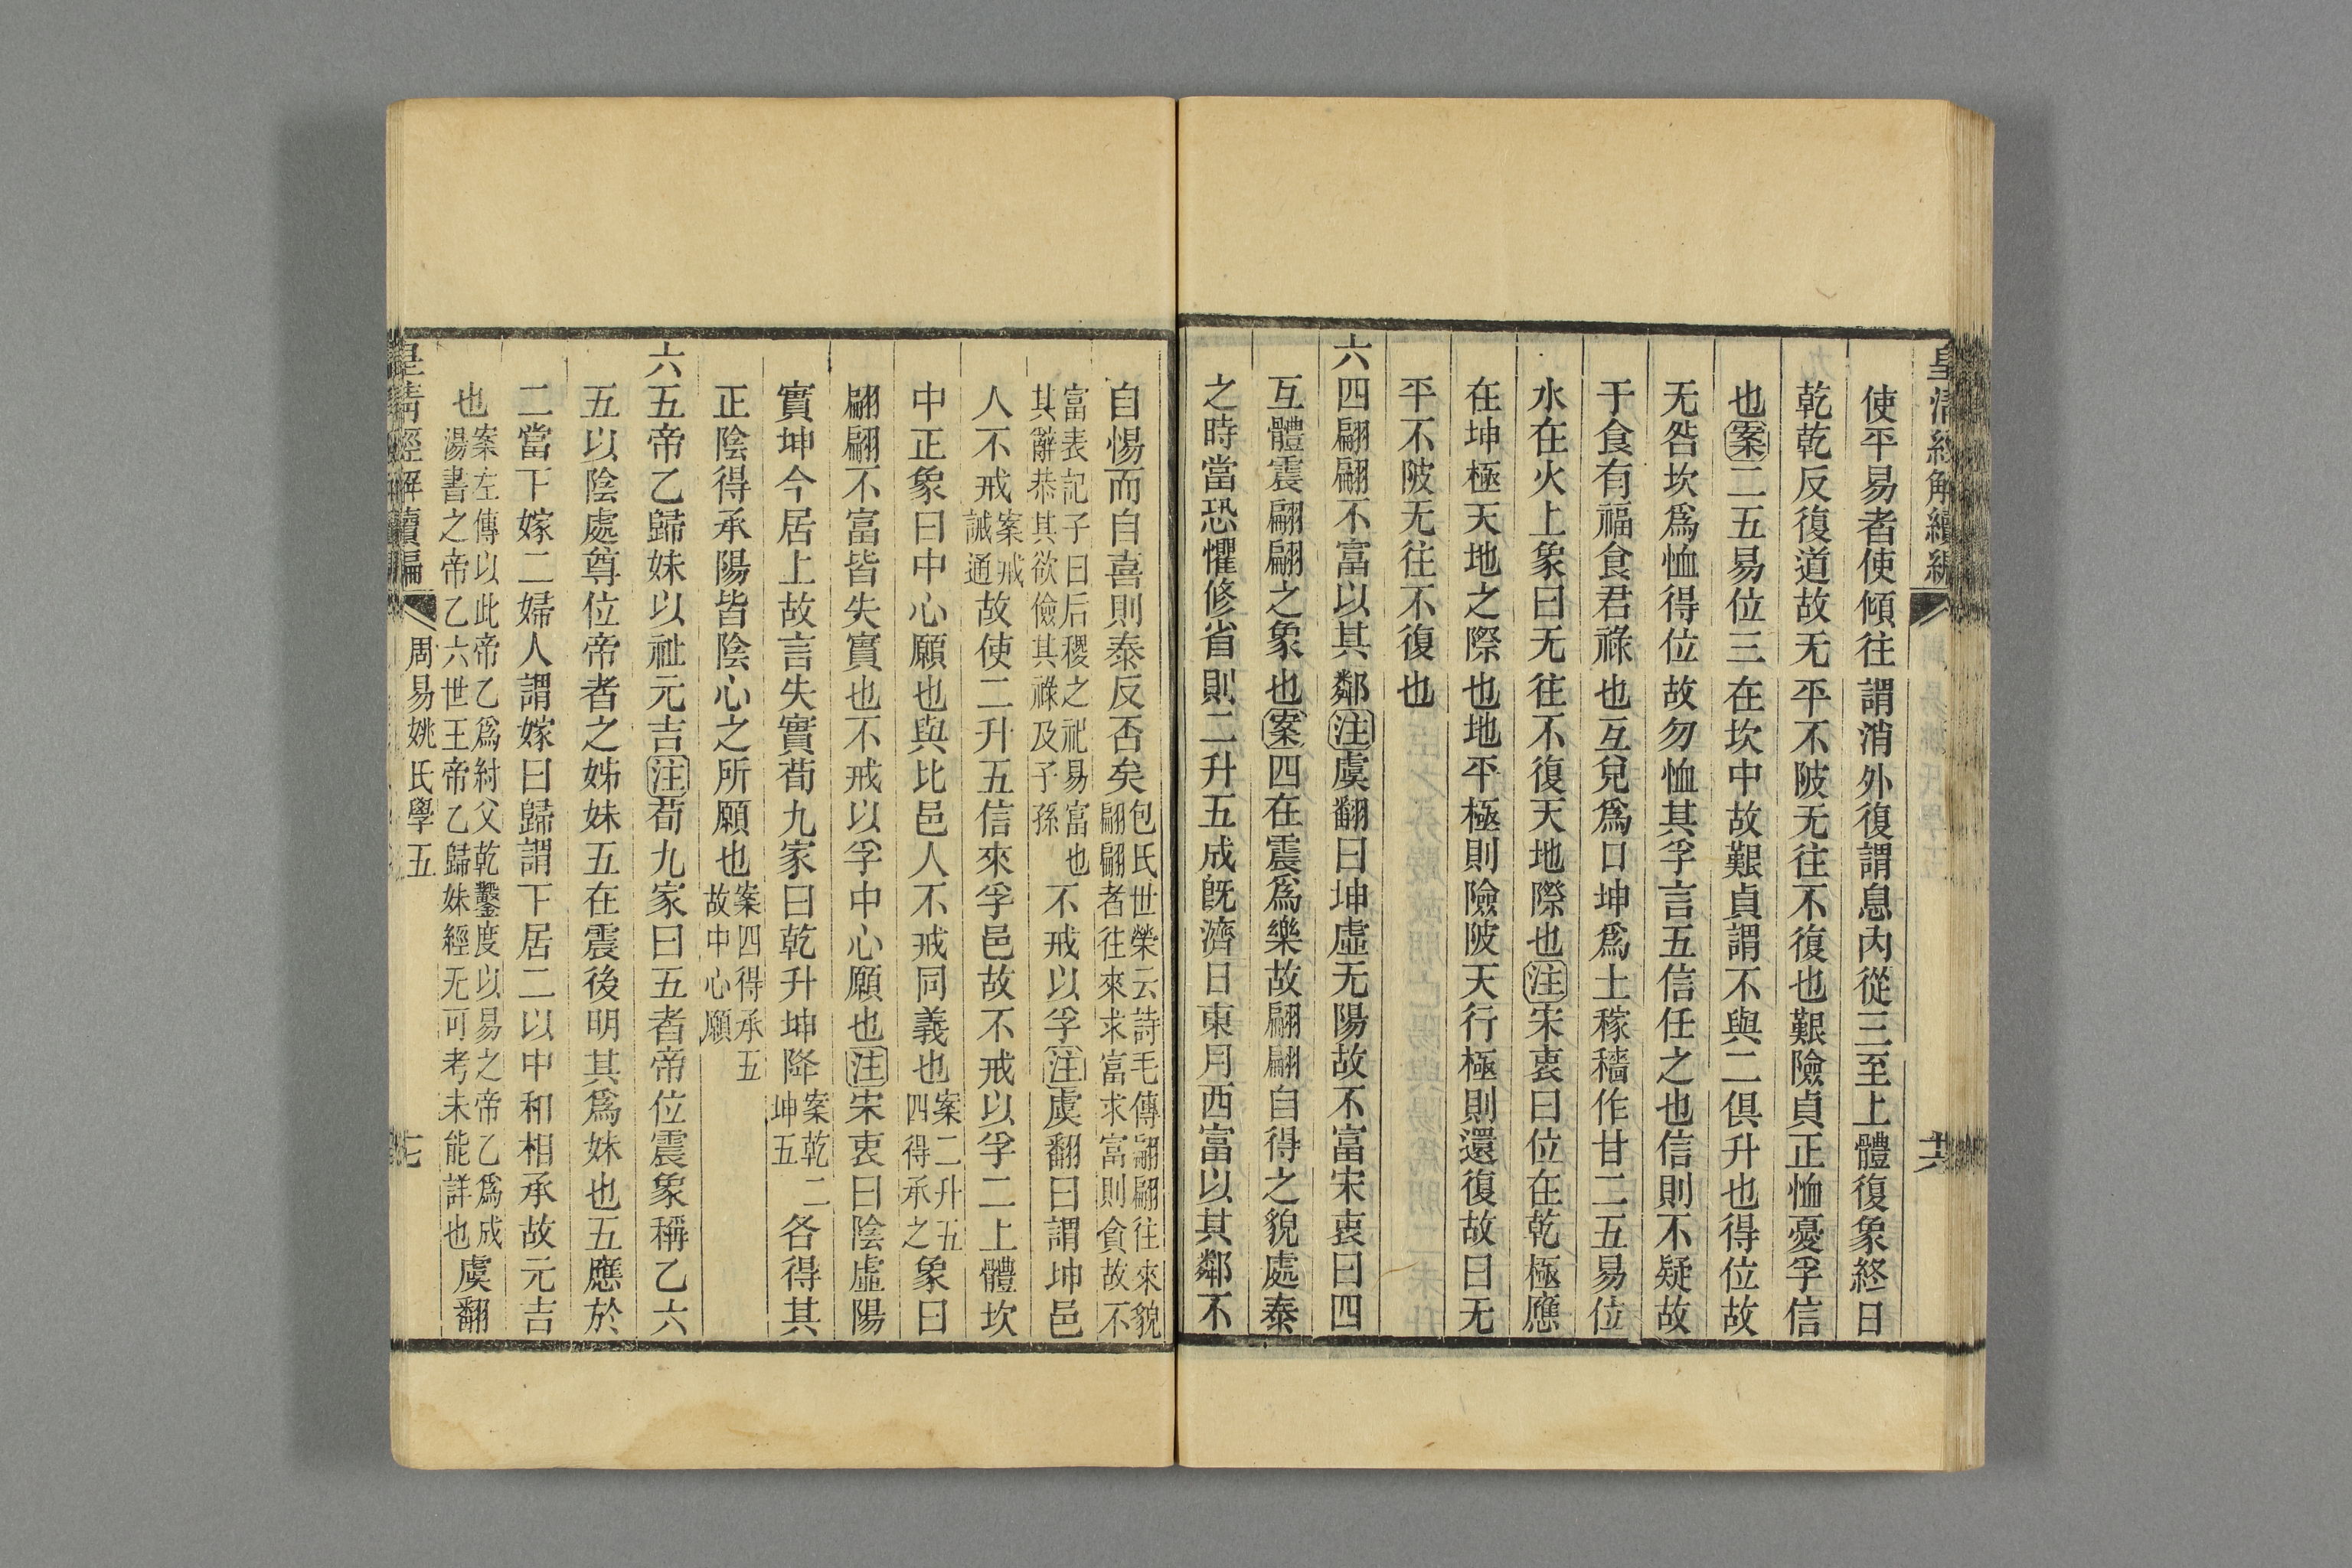 皇清經解續編
六
使平易者使傾往謂消外復謂息內從三至上體復象終日
乾乾反復道故无平不陂无往不復也艱險貞正恤憂孚信
也案二五易位三在坎中故艱貞謂不與二俱升也得位故
无咎坎爲恤得位故勿恤其孚言五信任之也信則不疑故
于食有福食君祿也互兌爲口坤爲土稼穡作甘二五易位
水在火上象曰无往不復天地際也注宋衷曰位在乾極應
在坤極天地之際也地平極則險陂天行極則還復故曰无
平不陂无往不復也
六四翩翩不富以其鄰注虞翻曰坤虛无陽故不富宋衷曰四
互體震翩翩之象也案四在震爲樂故翩翩自得之貌處泰
之時當恐懼修省則二升五成旣濟日東月西富以其鄰不
自惕而自喜則泰反否矣包氏世榮云詩毛傳翩翩往來貌翩翩者往來求富求富則貪故不
富表記子曰后稷之祀易富也其辭恭其欲儉其祿及子孫不戒以孚注虞翻曰謂坤邑
人不戒案戒誡通故使二升五信來孚邑故不戒以孚二上體坎
中正象曰中心願也與比邑人不戒同義也案二升五四得承之象曰
翩翩不富皆失實也不戒以孚中心願也注宋衷曰陰虛陽
實坤今居上故言失實荀九家曰乾升坤降案乾二坤五各得其
正陰得承陽皆陰心之所願也案四得承五故中心願
六五帝乙歸妹以祉元吉注荀九家曰五者帝位震象稱乙六
五以陰處尊位帝者之姊妹五在震後明其爲妹也五應於
二當下嫁二婦人謂嫁曰歸謂下居二以中和相承故元吉
也案左傳以此帝乙爲紂父乾鑿度以易之帝乙爲成湯書之帝乙六世王帝乙歸妹經无可考未能詳也虞翻
皇清經解續編
周易姚氏學五
七